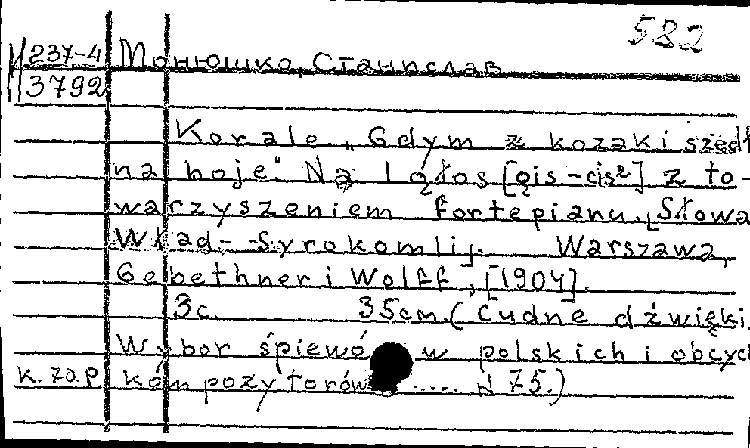 582
237-4 Монюшко, Станислав
3792
Korale „Gdym z kozaki szedł
na boje." Na 1 głos [gis-cis²] z to-
warzyszeniem fortepianu. [Słowa
Wład. Syrokomli]. Warszawa,
Gebethner i Wolff, [1904].
3 c. 35 cm. (Cudne dźwięki.
Wybór śpiewów polskich i obcych
k. zap. kompozytorów ..... N 75.)